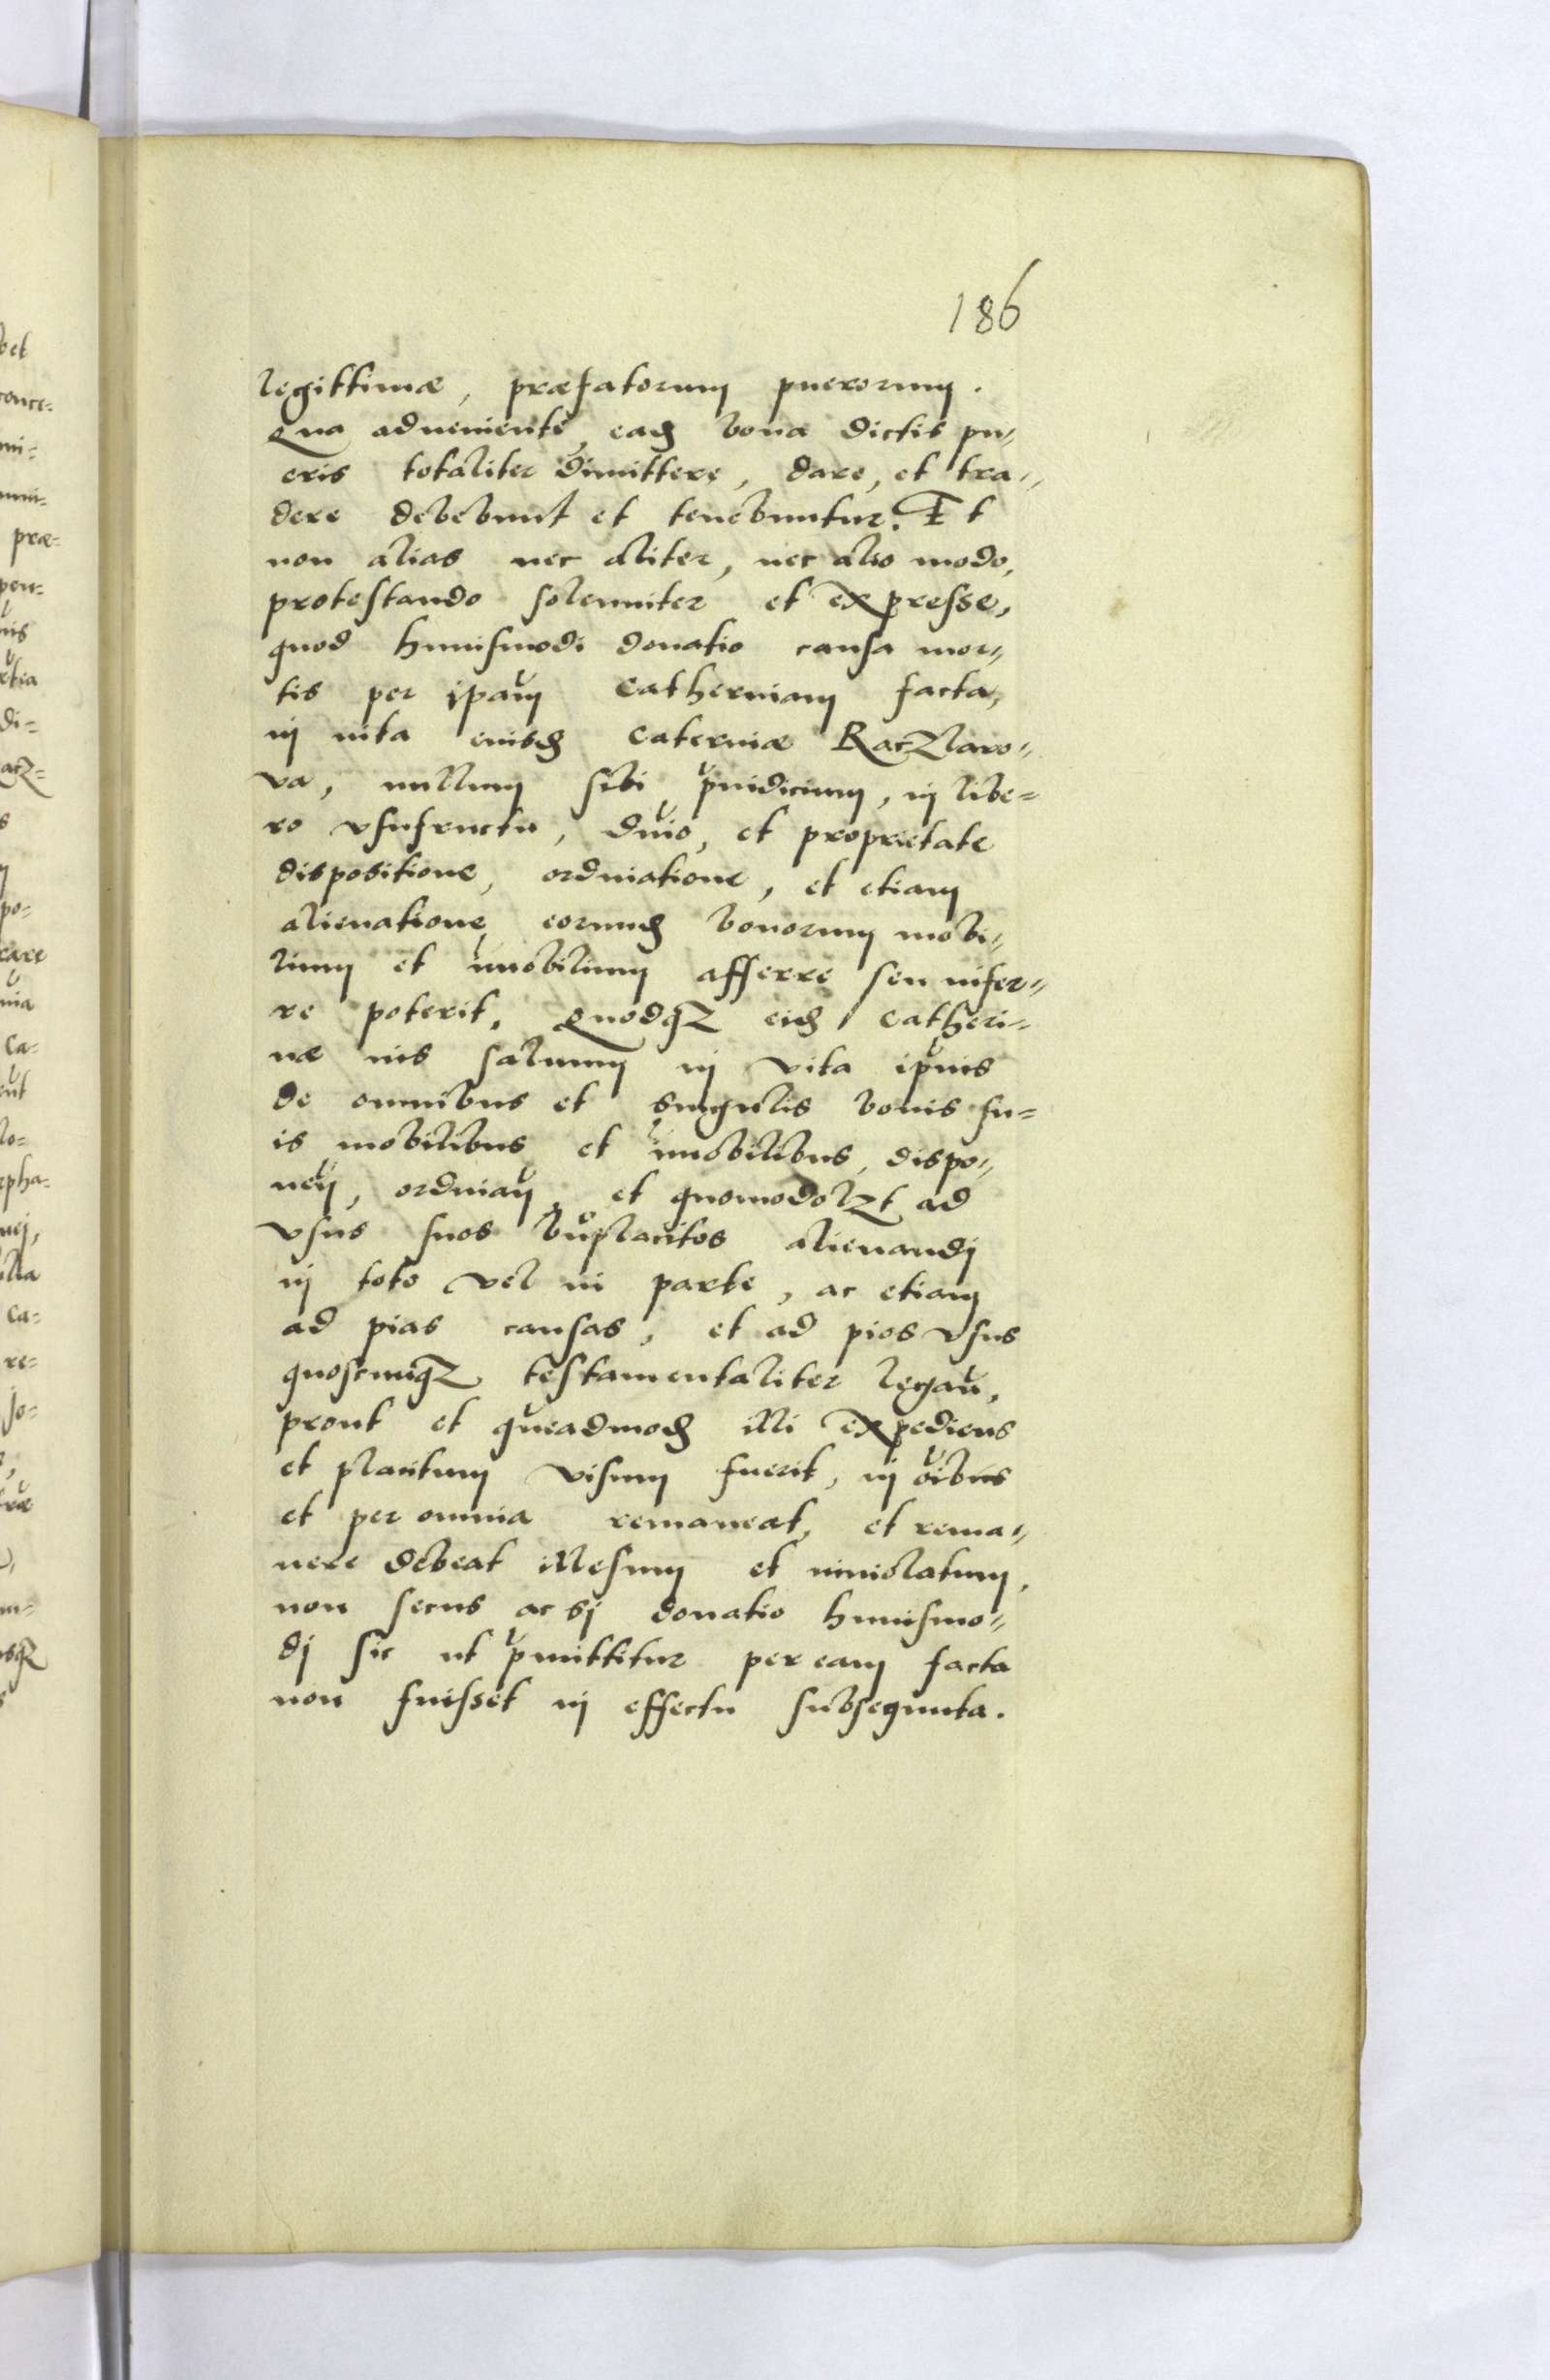 186
legittimæ, præfatorum puerorum.
Qua adueniente, ead bona dictis pu-
eris totaliter dimittere, dare, et tra-
dere debebunt et tenebuntur. Et
non alias nec aliter, nec alio modo,
protestando solenniter et expresse,
quod huiusmodi donatio causa mor-
tis per ipam Catherinam facta,
in uita eiusd Caterinæ Raczlawo-
va, nullum sibi pudicium, in libe-
ro vsufructu, dnio, et proprietate
dispositione, ordinatione, et etiam
alienatione, eorund bonorum mobi-
lium et imobilium afferre seu infer-
re poterit. Quodqz eid Catheri-
næ ius saluum in vita ipius
de omnibus et singulis bonis su-
is mobilibus et imobilibus, dispo-
nen, ordinan, et quomodolzt ad
vsus suos bnplacitos alienandi
in toto vel in parte, ac etiam
ad pias causas, et ad pios vsus
quoscunqz testamentaliter legan,
prout et queadmod illi expediens
et placitum visum fuerit, in oibus
et per omnia remaneat, et rema-
nere debeat illesum et inuiolatum,
non secus ac si donatio huiusmo-
di sic ut pmittitur per eam facta
non fuisset in effectu subsequuta.